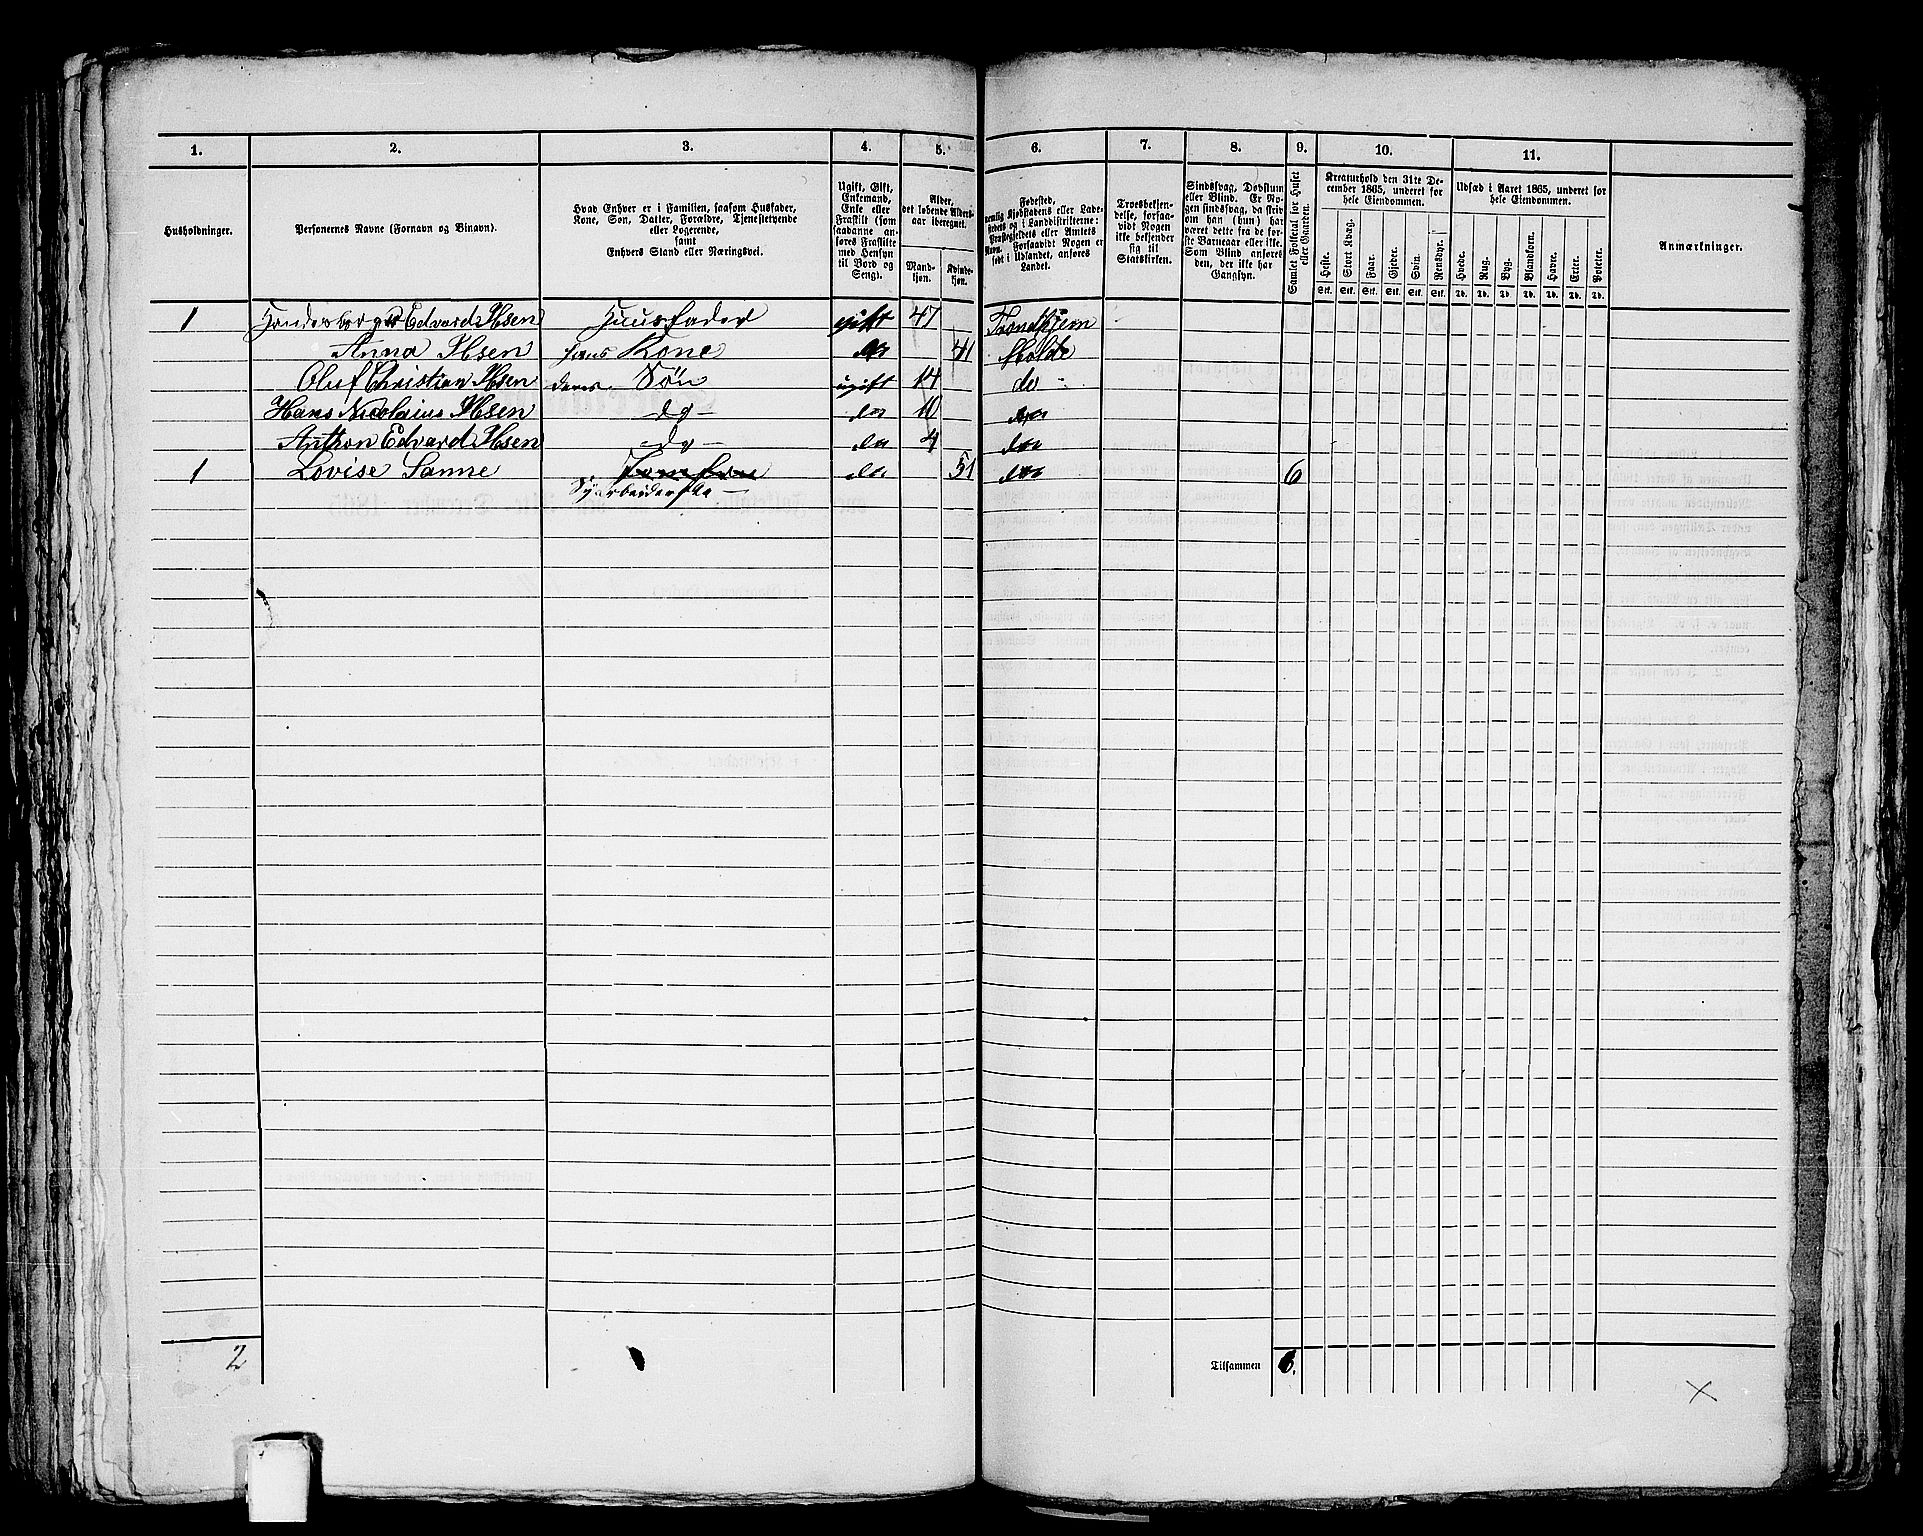 1. 2. 3. 4. 5. 6. 7. 8. 9. 10. 11.
Husholdninger.
Personernes Navne (Fornavn og Binavn).
Hvad Enhver er i Familien, saasom Husfader,
Kone, Søn, Datter, Forældre, Tjenestetyende
eller Logerende,
samt
Enhvers Stand eller Næringsvei.
Ugift, Gift,
Enkemand,
Enke eller
Fraskilt (som
saadanne an-
føres Fraskilte
med Hensyn
til Bord og
Seng).
Alder,
det løbende Alders-
aar iberegnet.
Mand-
kjøn.
Kvinde-
kjøn.
Fødested,
nemlig Kjøbstadens eller Lade-
stedets og i Landdistrikterne:
Præstegjeldets eller Amtets
Navn. Forsaavidt Nogen er
født i Udlandet, anføres
Landet.
Troesbekjen-
delse, forsaa-
vidt Nogen
ikke bekjender
sig til
Statskirken.
Sindssvag, Døvstum
eller Blind. Er No-
gen sindssvag, da skriv
om han (hun) har
været dette fra de før-
ste Barneaar eller ikke.
Som Blind anføres
den, der ikke har
Gangsyn.
Samlet Folketal for Huset
eller Gaarden.
Kreaturhold den 31te De-
cember 1865, underet for
hele Eiendommen.
Heste. Stort Kvæg. Faar. Gjeder. Svin. Rensdyr.
Stk. Stk. Stk. Stk. Stk. Stk.
Udsæd i Aaret 1865, underet for
hele Eiendommen.
Hvede. Rug. Byg. Blandkorn. Havre. Erter. Poteter.
Td. Td. Td. Td. Td. Td. Td.
Anmærkninger.
1 Edvard Ibsen Huusfader gift 47 Trondhjem
Anna Ibsen hans Kone do 41 Molde
Oluf Christian Ibsen deres Søn ugift 14 do
Hans Nicolaius Ibsen do do 10 do
Anthon Edvard Ibsen do do 4 do
1 Lovise Sanne do 51 do 6
Syarbeiderske
2 Tilsammen 6.